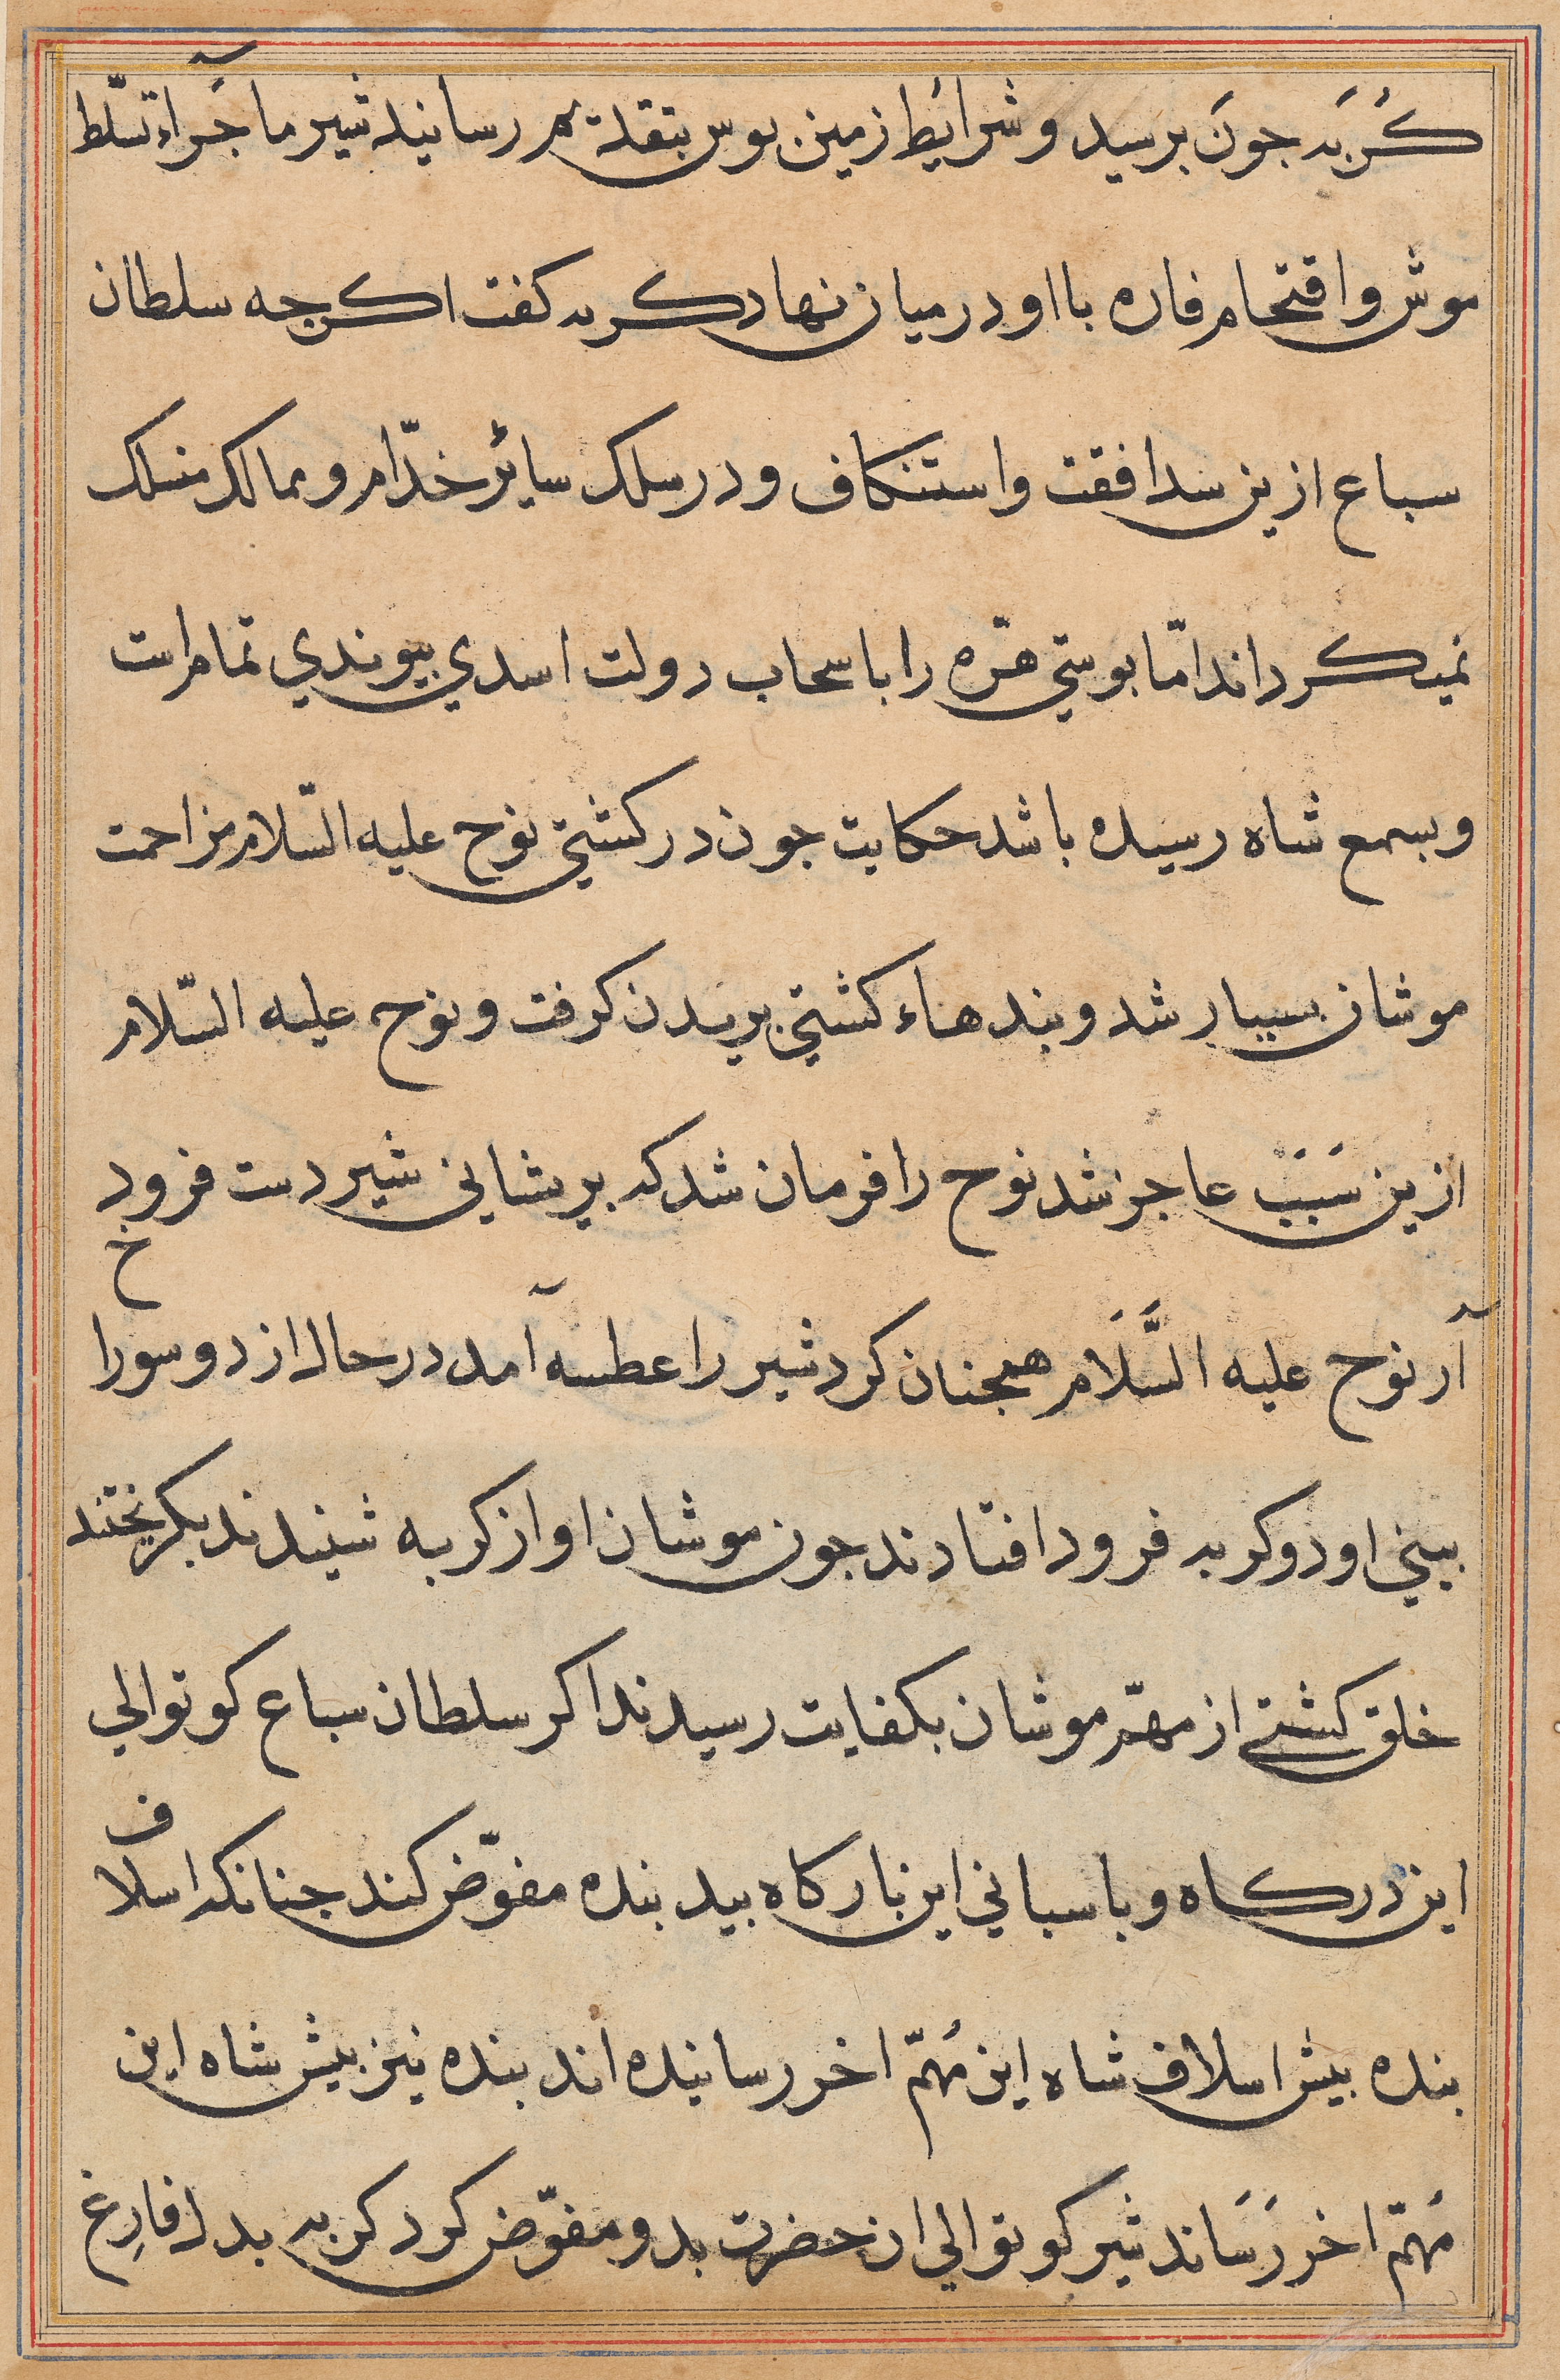 کُربَه جونَ برسید و شرایُط زمین بوس بتقدیم رسانید شیر ماجَراء تسلّط
موش واقتحام فاره با او در میان نهاد کربه کفت اکرجه سلطان
سباع ازین سدافقت واستنکاف ودر سلک سایر خدّام وممالک منسلک
نمیکرداند امّا بوستی هرّه را با سحاب دولت اسدی بیوندی تمامراست
وبسمع شاه رسیده باشد حکایت جون در کشتی نوح علیه السّلام مزاحمت
موشان بسیار شد وبندهاء کشتی بریدن کرفت ونوح علیه السّلام
ازین سَبَبَ عاجز شد نوح را فرمان شد که بربیشانی شیر دست فرود
آر نوح علیه السَّلَام همجنان کرد شیر را عطسه آمد در حال از دو سورا خ
بینی او دو کربه فرود افتادند جون موشان اواز کربه شنیدند بکریختند
خلق کشتی از مهمّ موشان بکفایت رسیدند اکر سلطان سباع کوتوالی
این درکاه وباسبانی این بارکاه بید بنده مفوّض کند جنانکه اسلا ف
بنده بیش اسلاف شاه این مُهمّ اخر رسانیده اند بنده نیز بیش شاه این
مُهمّ اخر رَسَاند شیر کوتوالی ان حضرت بدو مفوّض کرد کربه بدل فارِغ